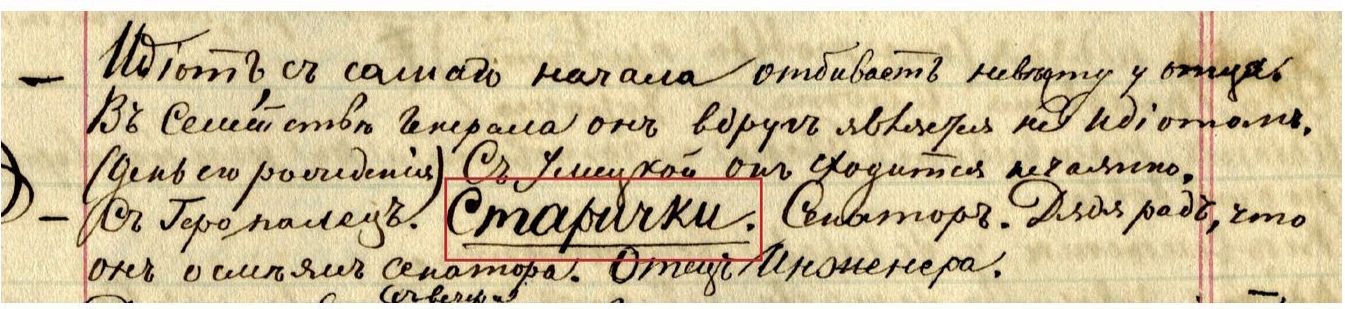 Идіотъ съ самаго начала отбиваетъ невѣсту у отца.
Въ Семействѣ Генерала онъ вдругъ является не Идіотомъ.
(День его рожденія) Съ Умецкой онъ сходится нечаянно.
Съ Геро палецъ. Старички. Сенаторъ. Дядя радъ, что
онъ осмѣялъ сенатора. Отецъ Инженера.